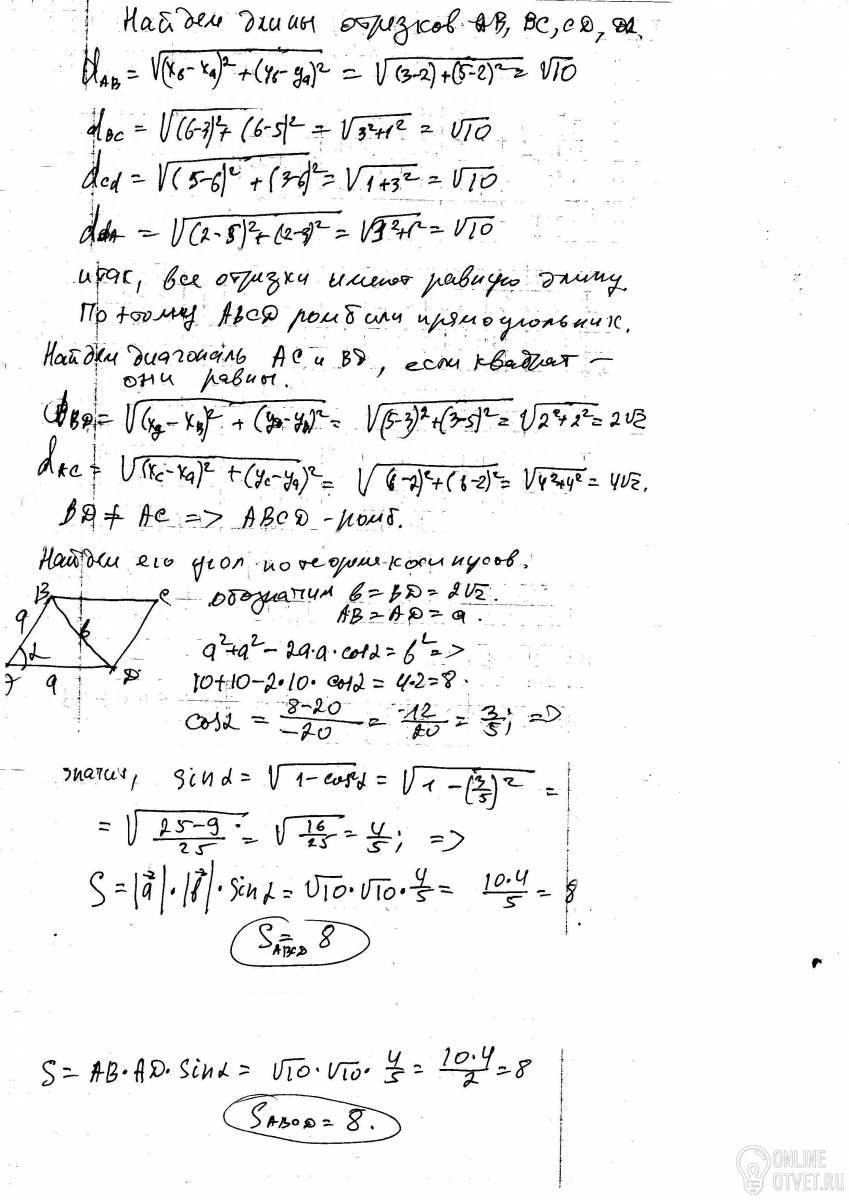 Найдем длины отрезков AB, BC, CD, DA.
d_AB = √((x_b - x_a)² + (y_b - y_a)²) = √((3-2) + (5-2)²) = √10
d_BC = √((6-3)² + (6-5)²) = √(3²+1²) = √10
d_cd = √((5-6)² + (3-6)²) = √(1+3²) = √10
d_dA = √((2-5)² + (2-3)²) = √(3²+1²) = √10
итак, все отрезки имеют равную длину.
Поэтому ABCD ромб или прямоугольник.
Найдем диагональ AC и BD, если квадрат —
они равны.
d_BD = √((x_д - x_B)² + (y_D - y_B)²) = √((5-3)² + (3-5)²) = √(2²+2²) = 2√2
d_AC = √((x_c - x_a)² + (y_c - y_a)²) = √((6-2)² + (6-2)²) = √(4²+4²) = 4√2.
BD ≠ AC => ABCD - ромб.
Найдем его угол по теореме косинусов.
B C
a в
α
a D
обозначим в = BD = 2√2.
AB = AD = a.
a² + a² - 2a·a·cosα = b² =>
10+10-2·10·cosα = 4·2 = 8.
cosα = (8-20)/(-20) = -12/20 = 3/5; =>
значит, sinα = √(1-cos²α) = √(1-(3/5)²) =
= √((25-9)/25) = √(16/25) = 4/5; =>
S = |a|·|b|·sinα = √10·√10·4/5 = (10·4)/5 = 8
S_ABCD = 8
S = AB·AD·sinα = √10·√10·4/5 = (10·4)/2 = 8
S_ABCD = 8.
ONLINE
OTVET.RU